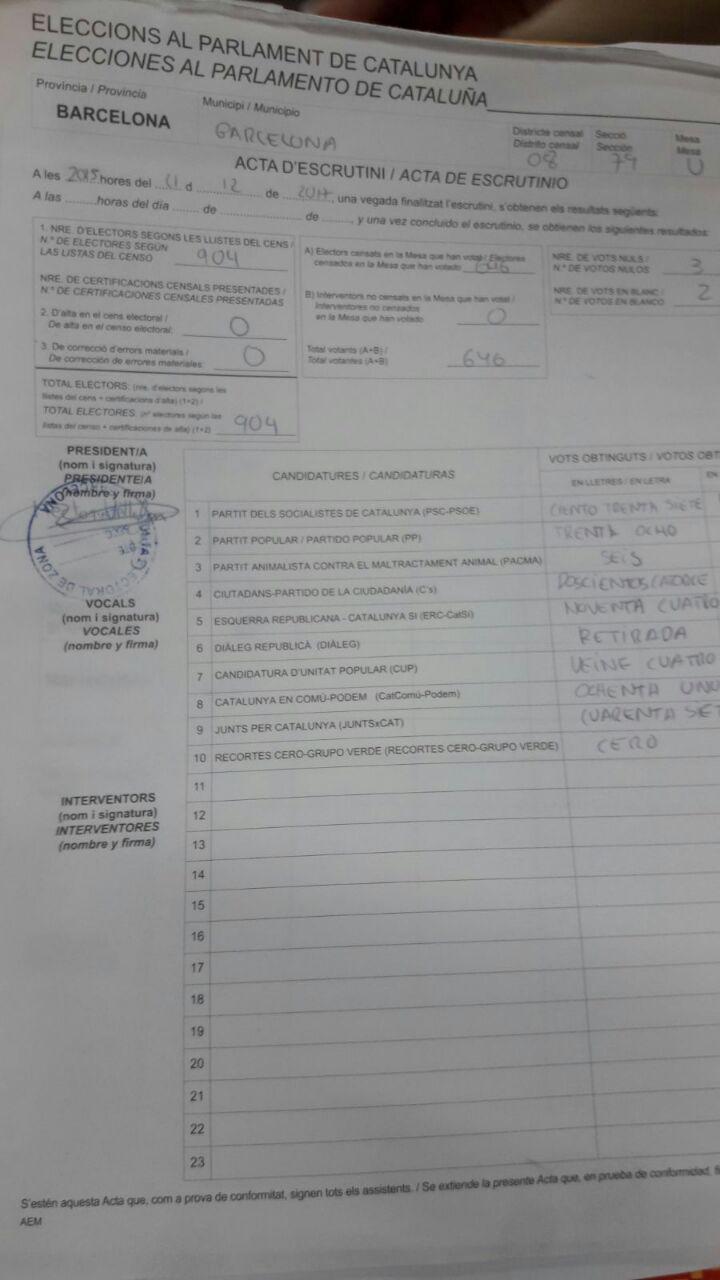 ELECCIONS AL PARLAMENT DE CATALUNYA
ELECCIONES AL PARLAMENTO DE CATALUÑA
Província / Provincia
BARCELONA
Municipi / Municipio
BARCELONA
Districte censal
Distrito censal
08
Secció
Sección
79
Mesa
Mesa
U
ACTA D'ESCRUTINI / ACTA DE ESCRUTINIO
A les hores del d 12 de 2017, una vegada finalitzat l'escrutini, s'obtenen els resultats següents:
A las horas del día de de , y una vez concluido el escrutinio, se obtienen los siguientes resultados:
1. NRE. D'ELECTORS SEGONS LES LLISTES DEL CENS /
N.º DE ELECTORES SEGÚN
LAS LISTAS DEL CENSO 904
NRE. DE CERTIFICACIONS CENSALS PRESENTADES /
N.º DE CERTIFICACIONES CENSALES PRESENTADAS
2. D'alta en el cens electoral /
De alta en el censo electoral: 0
3. De correcció d'errors materials /
De corrección de errores materiales: 0
TOTAL ELECTORS: (nre. d'electors segons les
llistes del cens + certificacions d'alta) (1+2) /
TOTAL ELECTORES: (nº electores según las
listas del censo + certificaciones de alta) (1+2) 904
A) Electors censats en la Mesa que han votat / Electores
censados en la Mesa que han votado 646
B) Interventors no censats en la Mesa que han votat /
Interventores no censados
en la Mesa que han votado 0
Total votants (A+B) /
Total votantes (A+B) 646
NRE. DE VOTS NULS /
N.º DE VOTOS NULOS 3
NRE. DE VOTS EN BLANC /
N.º DE VOTOS EN BLANCO 2
PRESIDENT/A
(nom i signatura)
PRESIDENTE/A
(nombre y firma)
VOCALS
(nom i signatura)
VOCALES
(nombre y firma)
INTERVENTORS
(nom i signatura)
INTERVENTORES
(nombre y firma)
CANDIDATURES / CANDIDATURAS
VOTS OBTINGUTS / VOTOS OBT
EN LLETRES / EN LETRA
EN
1 PARTIT DELS SOCIALISTES DE CATALUNYA (PSC-PSOE) CIENTO TRENTA SIETE
2 PARTIT POPULAR / PARTIDO POPULAR (PP) TRENTA OCHO
3 PARTIT ANIMALISTA CONTRA EL MALTRACTAMENT ANIMAL (PACMA) SEIS
4 CIUTADANS-PARTIDO DE LA CIUDADANÍA (C's) DOSCIENTOS CATORCE
5 ESQUERRA REPUBLICANA - CATALUNYA SÍ (ERC-CatSí) NOVENTA CUATRO
6 DIÀLEG REPUBLICÀ (DIÀLEG) RETIRADA
7 CANDIDATURA D'UNITAT POPULAR (CUP) VEINE CUATRO
8 CATALUNYA EN COMÚ-PODEM (CatComú-Podem) OCHENTA UNO
9 JUNTS PER CATALUNYA (JUNTSxCAT) CUARENTA SET
10 RECORTES CERO-GRUPO VERDE (RECORTES CERO-GRUPO VERDE) CERO
11
12
13
14
15
16
17
18
19
20
21
22
23
S'estén aquesta Acta que, com a prova de conformitat, signen tots els assistents. / Se extiende la presente Acta que, en prueba de conformidad, fi
AEM